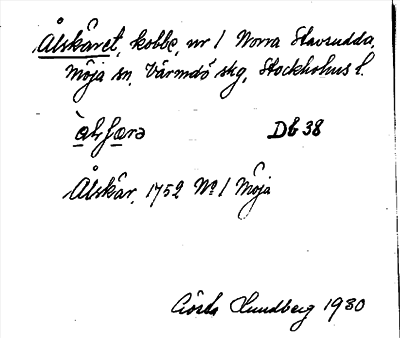 Ålskäret, kobbe, nr 1 Norra Stavsudda,
Möja sn, Värmdö skg, Stockholms l.
Db 38
Ålskär, 1752 No 1 Möja
Gösta Sundberg 1930